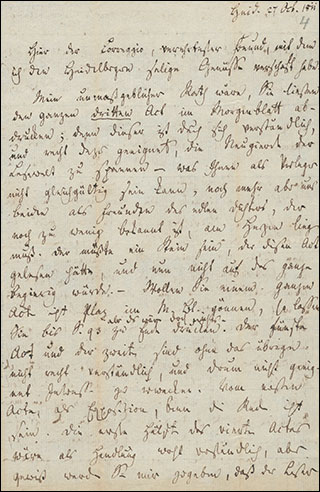 Heid. 27 Oct. 1811
4
Hier der Correggio, verehrtester Freund, mit dem
ich den Heidelbergern selige Genüsse verschafft habe.
Mein unmasgeblicher Rath wäre, Sie liessen
den ganzen dritten Act im Morgenblatt ab-
drucken; denn dieser ist durch sich verständlich,
und recht dazu geeignet, die Neugierde der
Lesewelt zu spannen – was Ihnen als Verleger
nicht gleichgültig sein kann, noch mehr aber uns
beiden als Freunden des edlen Dichters, der
noch zu wenig bekannt ist, am Herzen liegen
muß. Der müßte ein Stein sein, der diesen Act
gelesen hätte und nun nicht auf das ganze
begierig würde. – Wollen Sie einem ganzen
Act ist Plaz im M. Bl. gönnen, so lassen
Sie bis S. 93 zu Ende drucken. Der
Act und der zweite sind ohne das übrige
nicht recht verständlich, und drum nicht geeig-
net Interesse zu erwecken. Vom ersten
Acte, als Exposition, kann die Rede nicht
sein. Die erste Hälfte des vierten Actes
wäre als Handlung wohl verständlich, aber
gewiß werden Sie mir zugeben, daß der Leser